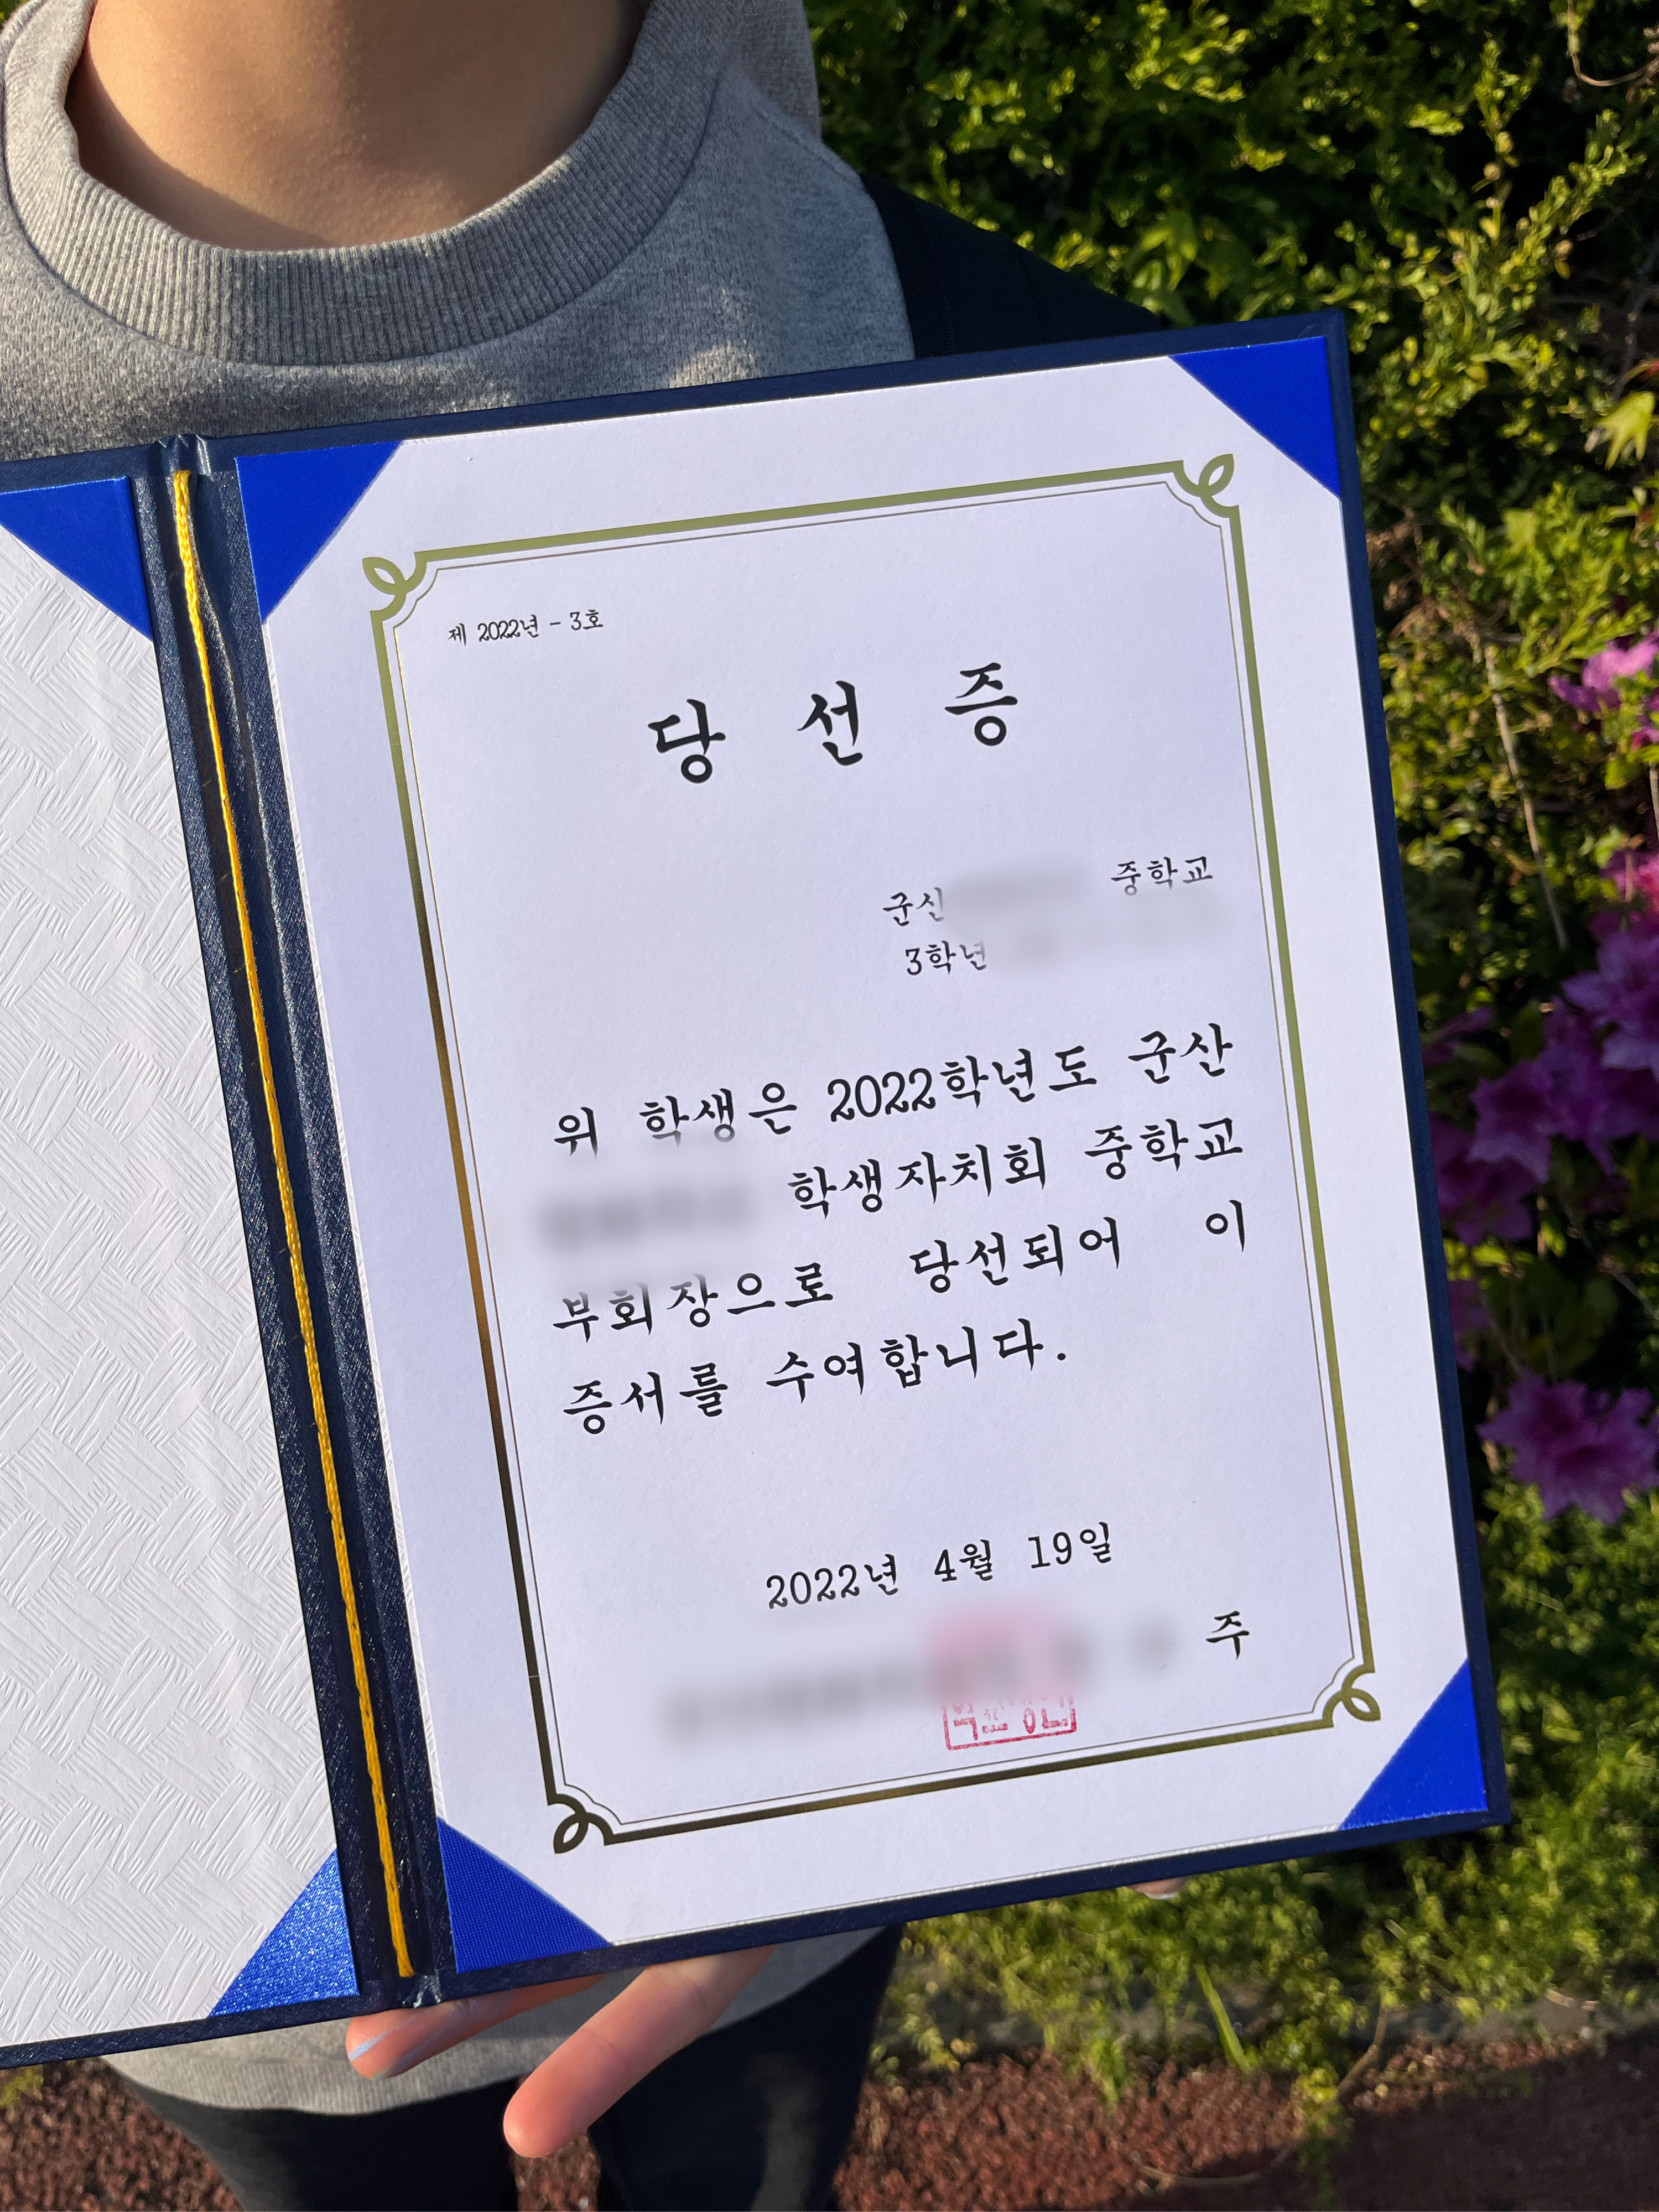 제 2022년 - 3호
당 선 증
군산 중학교
3학년
위 학생은 2022학년도 군산
학생자치회 중학교
부회장으로 당선되어 이
증서를 수여합니다.
2022년 4월 19일
주